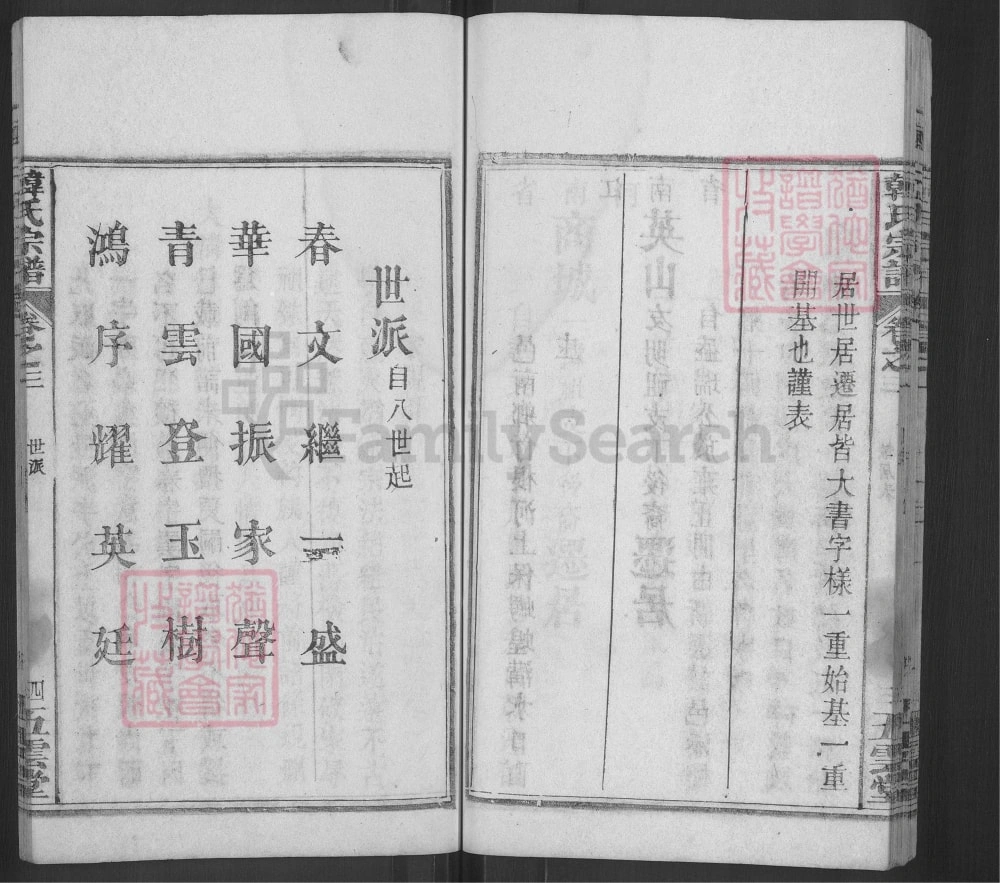 居世居遷居皆大書字樣一重始基一重
開基也謹表
韓氏宗譜
卷之三
五雲堂
世派自八世起
春文繼一盛
華國振家聲
青雲登玉樹
鴻序耀英廷
韓氏宗譜
卷之三
世派
四
五雲堂
FamilySearch